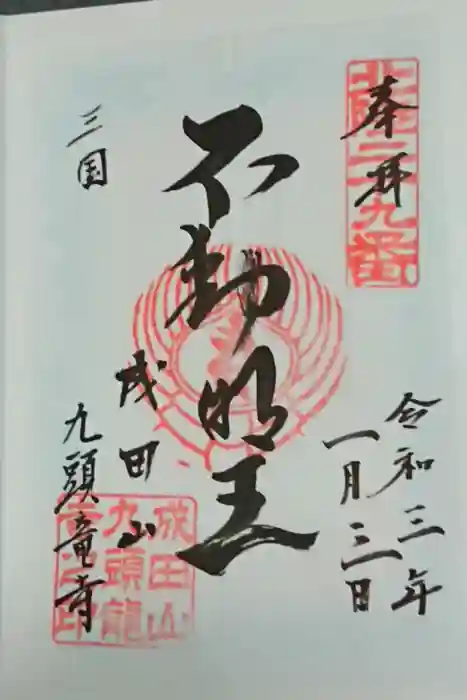 奉拝
北陸二十九番
令和三年
一月三日
不動明王
成田山
三国
九頭竜寺
成田山
九頭龍
寺印